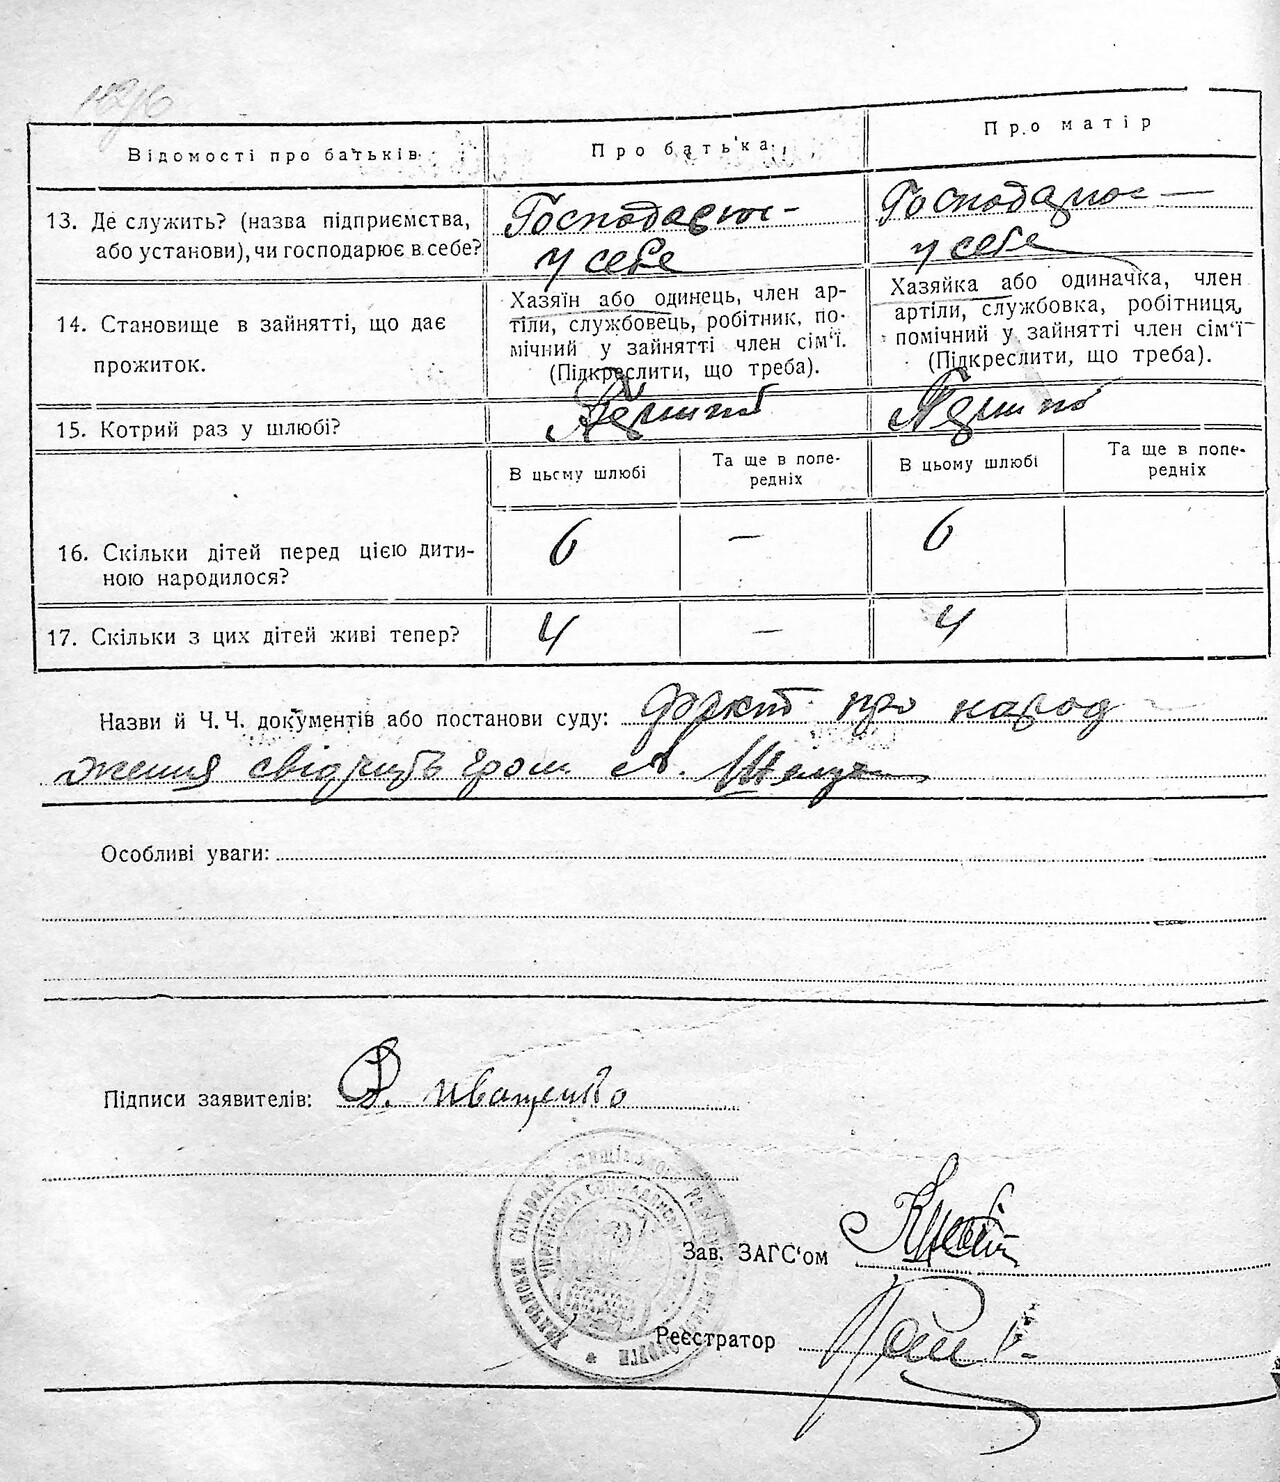 Відомості про батьків
Про батька
Про матір
13. Де служить? (назва підприємства,
або установи), чи господарює в себе?
Господарює
у себе
Господарює
у себе
14. Становище в зайнятті, що дає
прожиток.
Хазяїн або одинець, член ар-
тіли, службовець, робітник, по-
мічний у зайнятті член сім'ї.
(Підкреслити, що треба).
Хазяйка або одиначка, член
артіли, службовка, робітниця,
помічний у зайнятті член сім'ї
(Підкреслити, що треба).
15. Котрий раз у шлюбі?
В цьому шлюбі
Та ще в попе-
редніх
В цьому шлюбі
Та ще в попе-
редніх
16. Скільки дітей перед цією дити-
ною народилося?
6 — 6
17. Скільки з цих дітей живі тепер?
4 — 4
Назви й Ч.Ч. документів або постанови суду: Факт про народ-
ження свідчить гром.
Особливі уваги:
Підписи заявителів: Иващенко
Зав. ЗАГС'ом
Реєстратор